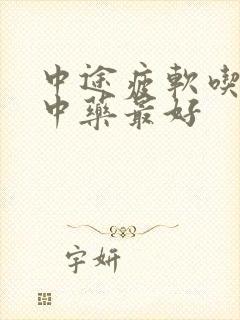 中途疲軟喫
中藥最好
宇妍